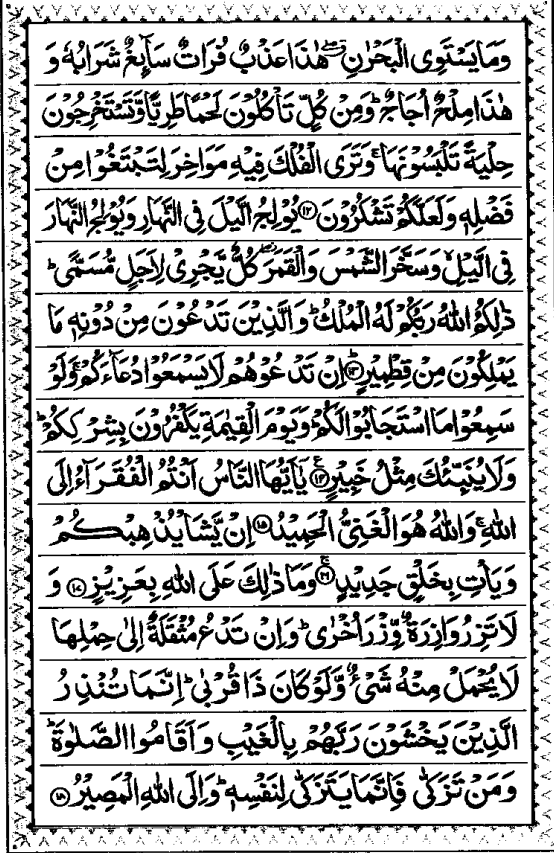 وَمَا يَسْتَوِي الْبَحْرٰنِ ۖ هٰذَا عَذْبٌ فُرَاتٌ سَآئِغٌ شَرَابُهٗ وَ
هٰذَا مِلْحٌ اُجَاجٌ ؕ وَمِنْ كُلٍّ تَاْكُلُوْنَ لَحْمًا طَرِيًّا وَّتَسْتَخْرِجُوْنَ
حِلْيَةً تَلْبَسُوْنَهَا ۚ وَتَرَى الْفُلْكَ فِيْهِ مَوَاخِرَ لِتَبْتَغُوْا مِنْ
فَضْلِهٖ وَلَعَلَّكُمْ تَشْكُرُوْنَ ﴿۱۲﴾ يُوْلِجُ الَّيْلَ فِى النَّهَارِ وَيُوْلِجُ النَّهَارَ
فِى الَّيْلِ ۙ وَسَخَّرَ الشَّمْسَ وَالْقَمَرَ ۖ كُلٌّ يَّجْرِيْ لِاَجَلٍ مُّسَمًّى ؕ
ذٰلِكُمُ اللّٰهُ رَبُّكُمْ لَهُ الْمُلْكُ ؕ وَالَّذِيْنَ تَدْعُوْنَ مِنْ دُوْنِهٖ مَا
يَمْلِكُوْنَ مِنْ قِطْمِيْرٍ ﴿۱۳﴾ اِنْ تَدْعُوْهُمْ لَا يَسْمَعُوْا دُعَآءَكُمْ ۚ وَلَوْ
سَمِعُوْا مَا اسْتَجَابُوْا لَكُمْ ؕ وَيَوْمَ الْقِيٰمَةِ يَكْفُرُوْنَ بِشِرْكِكُمْ ؕ
وَلَا يُنَبِّئُكَ مِثْلُ خَبِيْرٍ ﴿۱۴﴾ يٰۤاَيُّهَا النَّاسُ اَنْتُمُ الْفُقَرَآءُ اِلَى
اللّٰهِ ۚ وَاللّٰهُ هُوَ الْغَنِيُّ الْحَمِيْدُ ﴿۱۵﴾ اِنْ يَّشَاْ يُذْهِبْكُمْ
وَيَاْتِ بِخَلْقٍ جَدِيْدٍ ﴿۱۶﴾ وَمَا ذٰلِكَ عَلَى اللّٰهِ بِعَزِيْزٍ ﴿۱۷﴾ وَ
لَا تَزِرُ وَازِرَةٌ وِّزْرَ اُخْرٰى ؕ وَاِنْ تَدْعُ مُثْقَلَةٌ اِلٰى حِمْلِهَا
لَا يُحْمَلْ مِنْهُ شَيْءٌ وَّلَوْ كَانَ ذَا قُرْبٰى ؕ اِنَّمَا تُنْذِرُ
الَّذِيْنَ يَخْشَوْنَ رَبَّهُمْ بِالْغَيْبِ وَاَقَامُوا الصَّلٰوةَ ؕ
وَمَنْ تَزَكّٰى فَاِنَّمَا يَتَزَكّٰى لِنَفْسِهٖ ؕ وَاِلَى اللّٰهِ الْمَصِيْرُ ﴿۱۸﴾